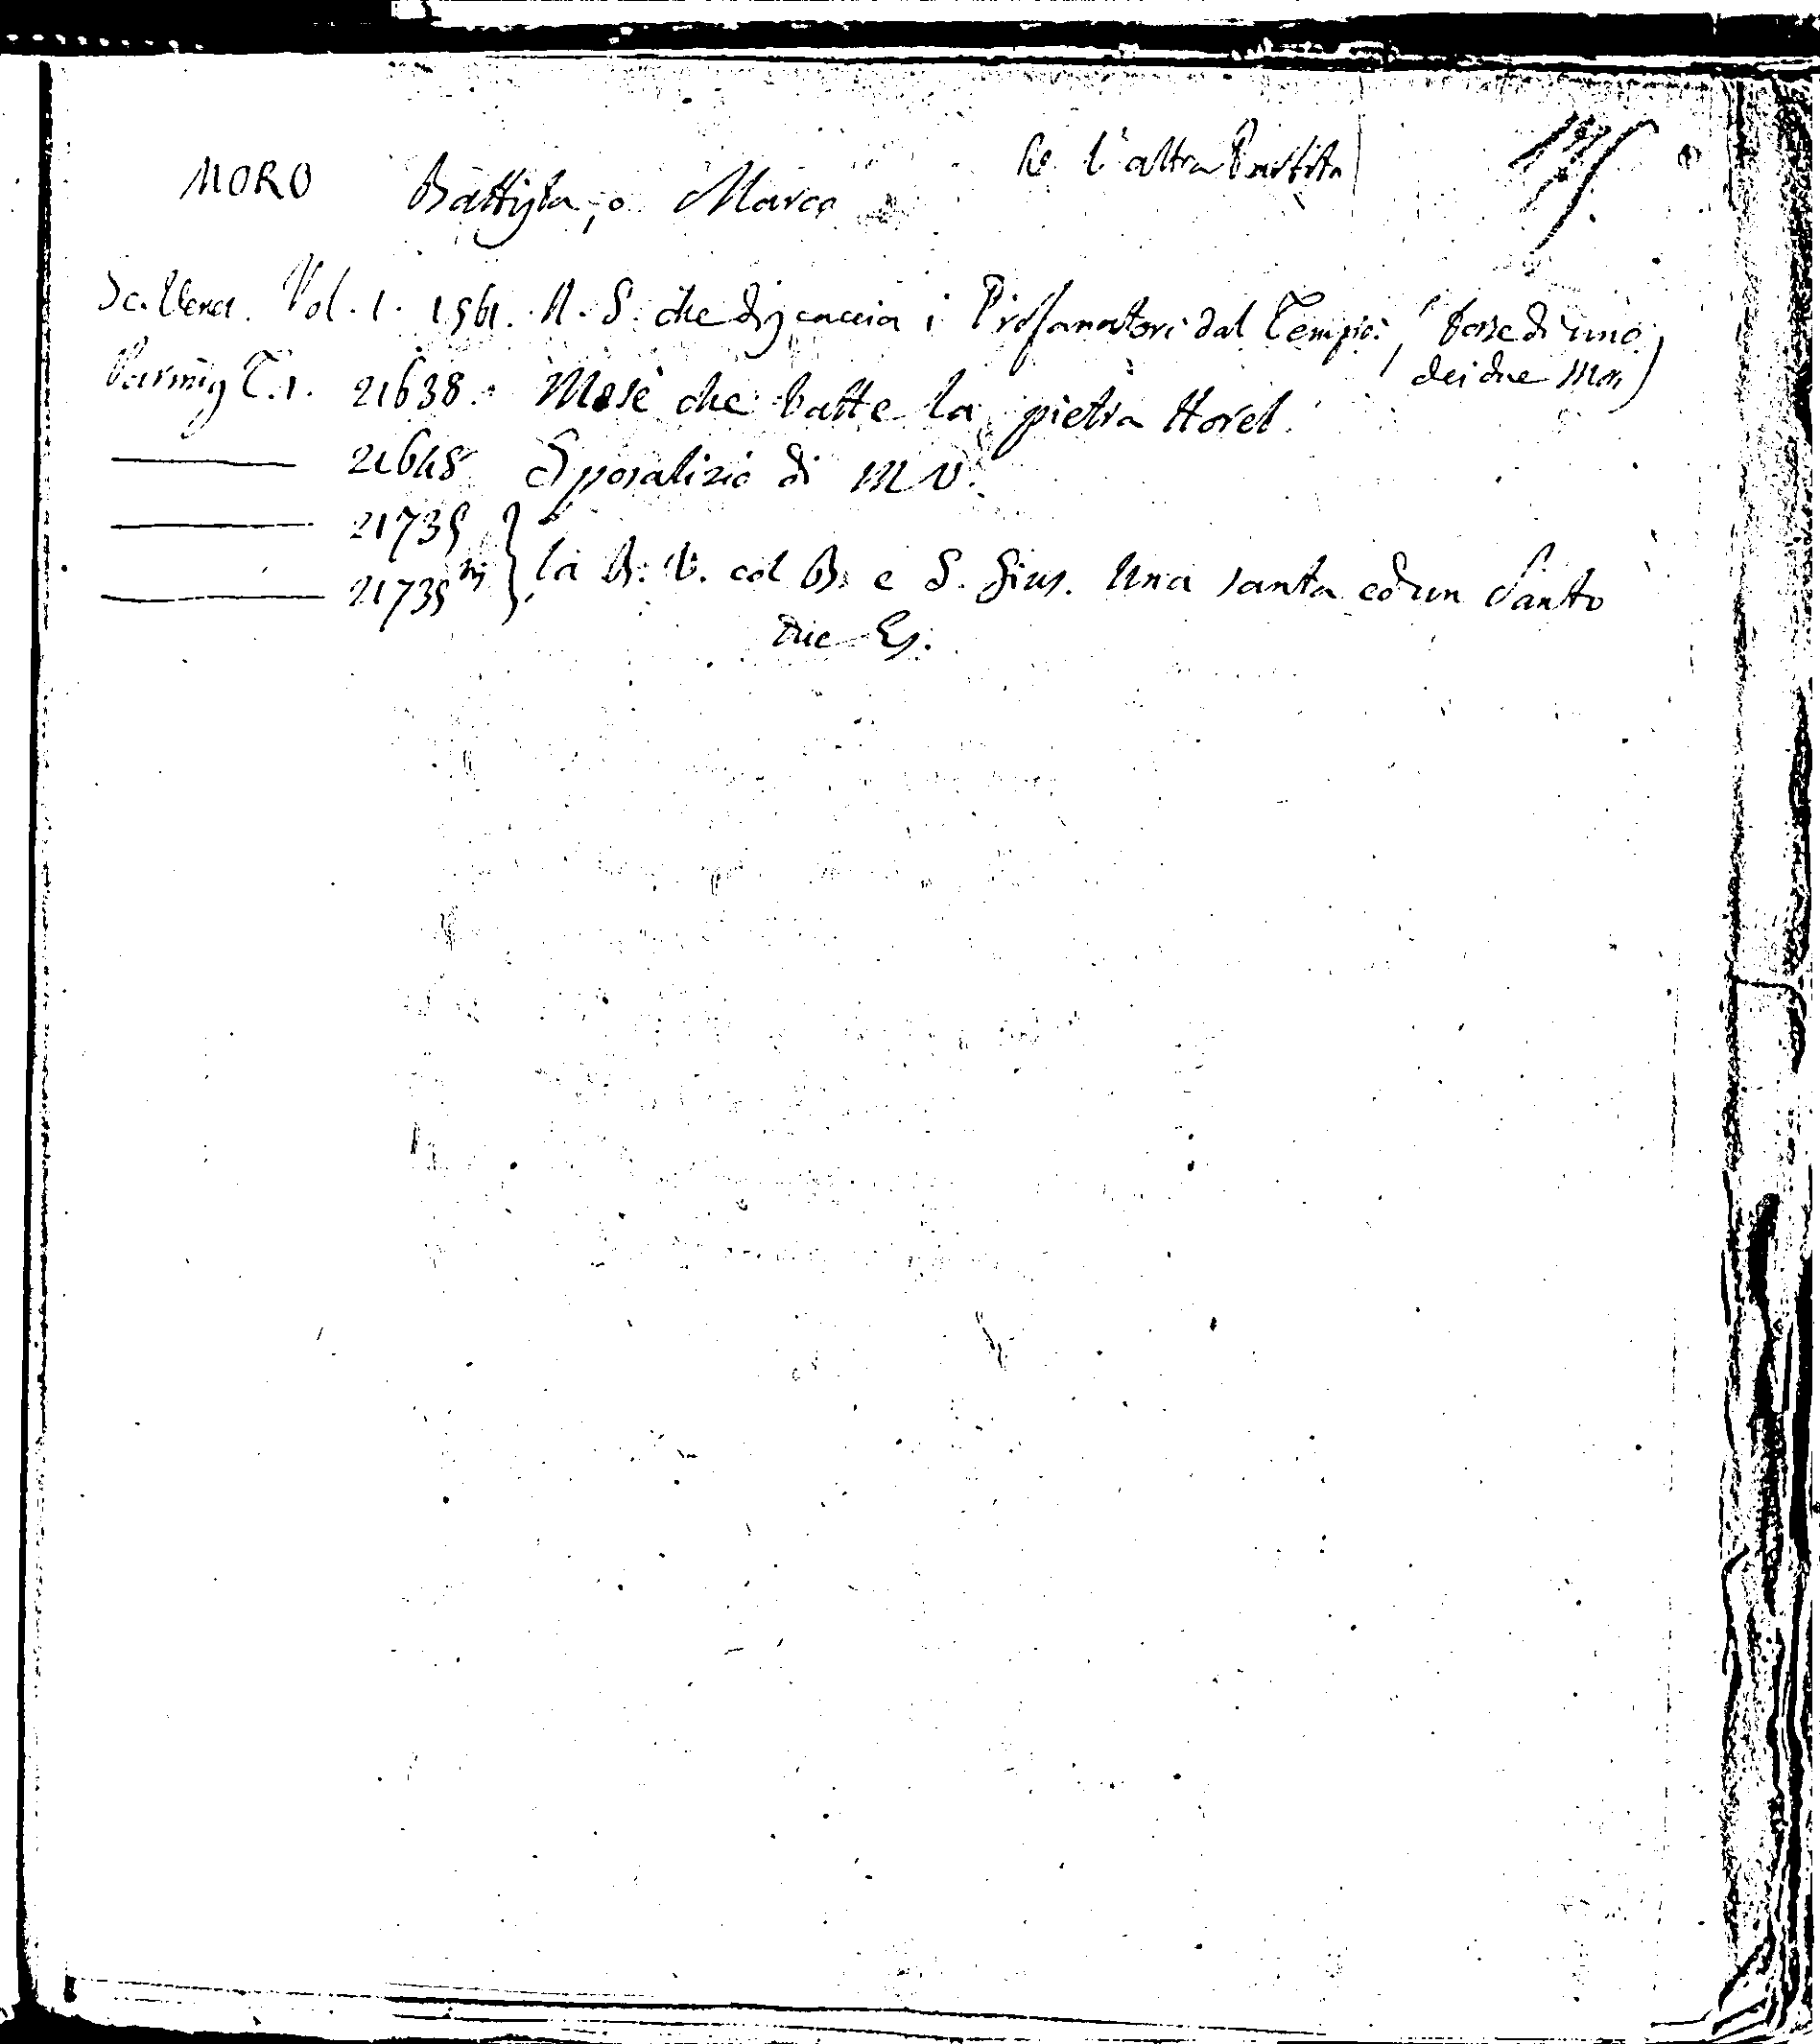 MORO Battista, o Marco
l'altra Partita
Sc. Venez. Vol. 1. 1561. N. S. che discaccia i Profanatori dal Tempio. (forse di uno
dei due Mori)
Parmig T. 1. 21638. Mosè che batte la pietra Horeb.
21648 Sposalizio di M V.
21735
21735 bis } la B. V. col B. e S. Gius. Una santa ed un Santo
Due Es.